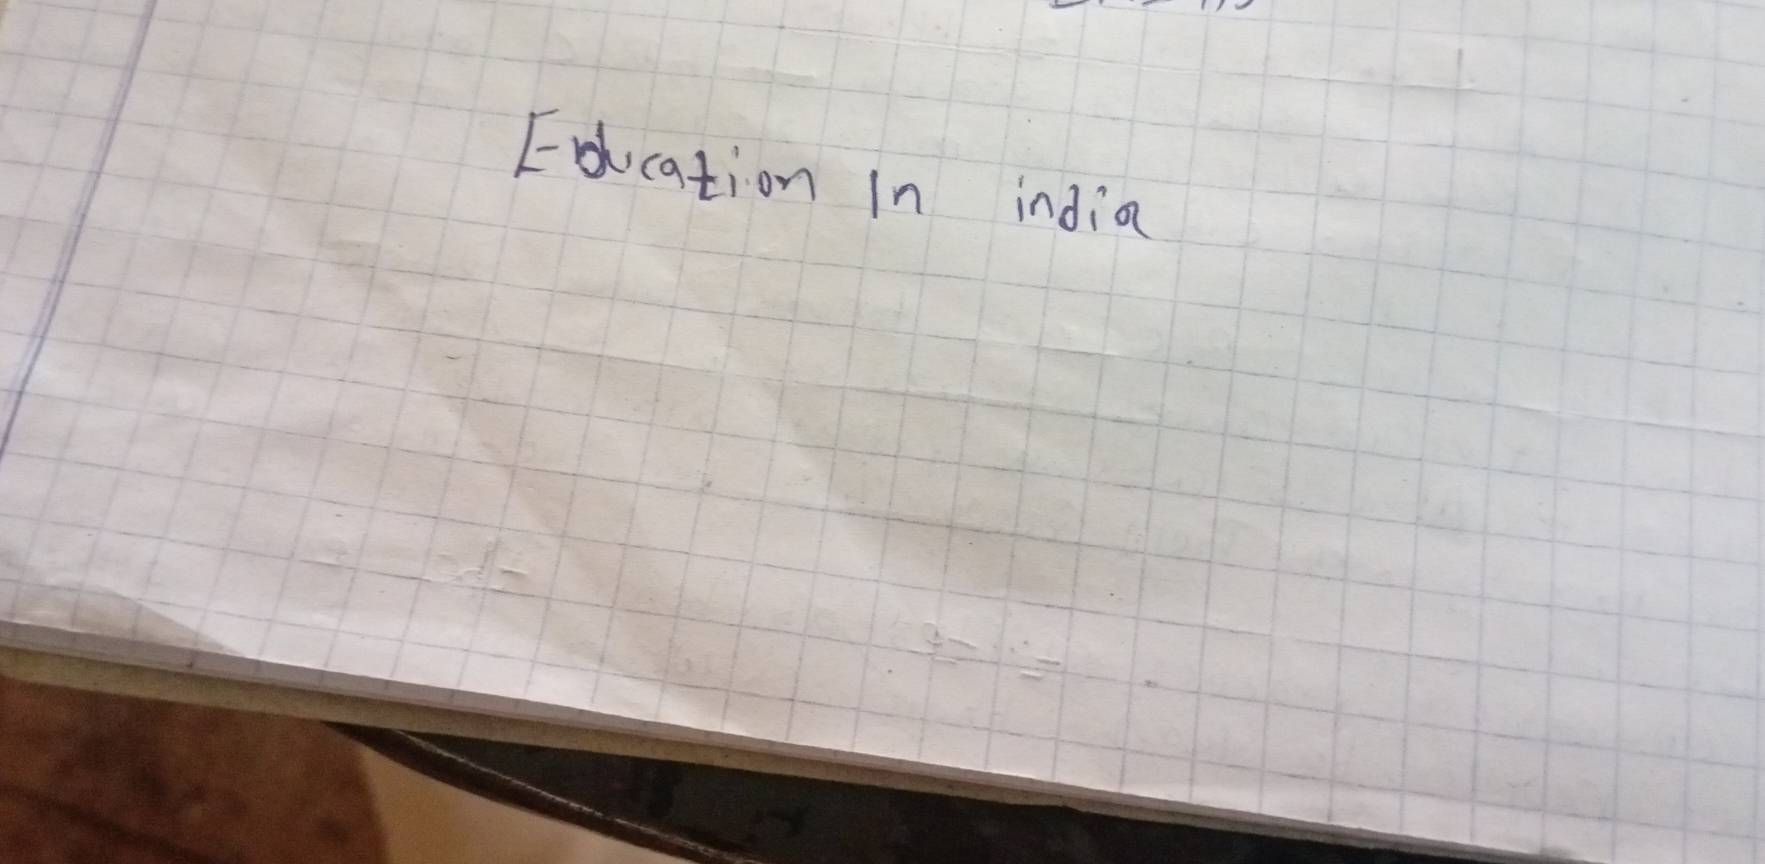 Education In india